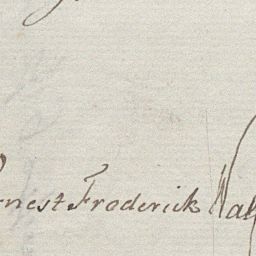 Ernest Frederick Wal